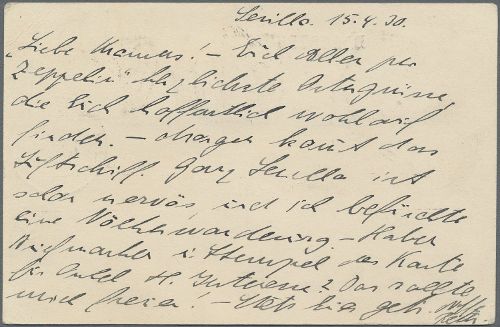 Sevilla. 15.4.30.
"Liebe Mamas! – Euch Allen per
Zeppelin" herzlichste Ostergrüsse,
die Euch hoffentlich wohlauf
finden. – Morgen kommt das
Luftschiff. Ganz Sevilla ist
schon nervös und ich befürchte
eine Völkerwanderung. – Haben
Briefmarken u. Stempel der Karte
für Onkel H. Interesse? Das sollte
mich freuen! – Stets Eier geh.